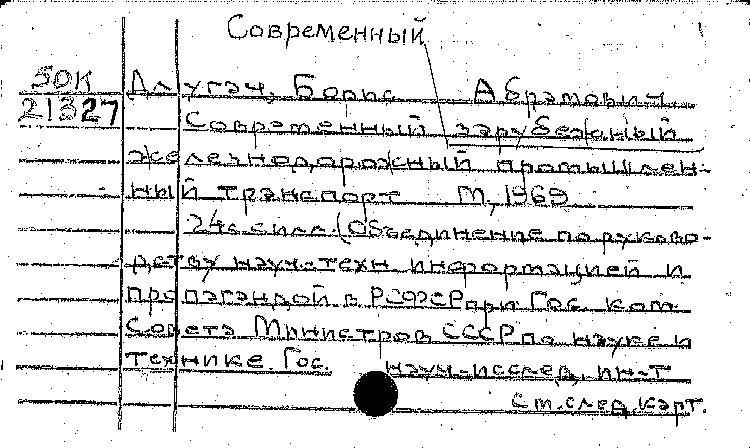 Современный
50К Длугач, Борис Абрамович.
21327
Современный зарубежный
железнодорожный промышлен-
ный транспорт М, 1969
24с. с илл. (Объединение по руково-
дству науч-техн. информацией и
пропагандой в РСФСР при Гос. ком.
Совета Министров СССР по науке и
технике. Гос. науч-исслед. ин-т
см. след. карт.